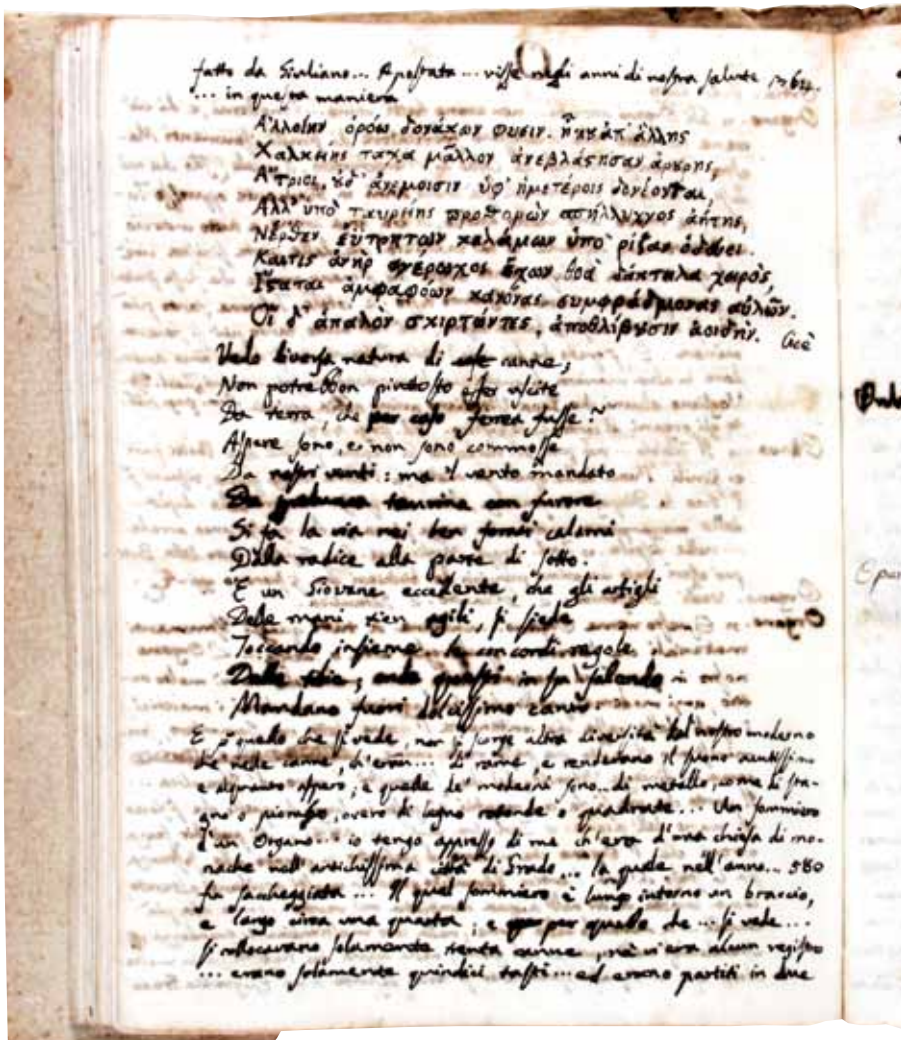 fatto da Giuliano... Apostata... visse negli anni di nostra salute 364.
... in questa maniera
Ἀλλοίην ὁρόω δονάκων φύσιν. ἤπου ἀπ' ἄλλης
Χαλκείης τάχα μᾶλλον ἀνεβλάστησαν ἀρούρης,
Ἄγριοι, οὐδ' ἀνέμοισιν ὑφ' ἡμετέροις δονέονται,
Ἀλλ' ὑπὸ ταυρείης προθορὼν σπήλυγγος ἀήτης,
Νέρθεν ἐϋτρήτων καλάμων ὑπὸ ῥίζαν ὁδεύει.
Καί τις ἀνὴρ ἀγέρωχος ἔχων θοὰ δάκτυλα χειρός,
Ἵσταται ἀμφαφόων κανόνας συμφράδμονας αὐλῶν.
Οἱ δ' ἁπαλὸν σκιρτῶντες, ἀποθλίβουσιν ἀοιδήν. Cioè
Vedo diversa natura di canne;
Non potrebbon piutosto esser uscite
Da terra, che per caso ferrea fusse?
Aspare sono, e non sono commosse
Da nostri venti: ma il vento mandato
Da taurina con furore
Si fa la via nei ben forati calami
Dalla radice alla parte di sotto.
E un Giovane eccellente, che gli artigli
Delle mani tien agili, si siede
Toccando insieme le concordi regole
Delle tibie, onde questi in sù salendo
Mandano fuori dolcissimo canto.
E p quello che si vede, non si scorge altra diversità dal nostro moderno
che nelle canne, ch'eran... di rame, e rendevano il suono acutissimo
e alquanto asparo; e quelle de' moderni sono... di metallo, come di sta-
gno o piombo, overo di legno rotonde o quadrate... Un sommiero
d'un Organo... io tengo appresso di me ch'era d'una chiesa di mo-
nache nell'antichissima città di Grado... la quale nell'anno... 580
fu saccheggiata... Il qual sommiero è lungo intorno un braccio,
e largo circa una quarta; e per quello che... si vede...
si collocavano solamente trenta canne, nè v'era alcun registro
... erano solamente quindici tasti... ed erano partiti in due